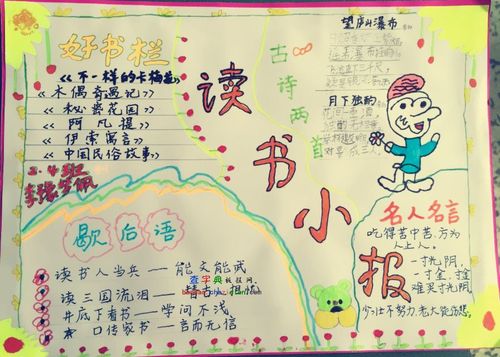 好书栏
《不一样的卡梅拉》
《木偶奇遇记》
《秘密花园》
《阿凡提》
《伊索寓言》
《中国民俗故事》
歇后语
读书人当兵——能文能武
读三国流泪——替古人担忧
井底下看书——学问不浅
口传家书——言而无信
读书小报
古诗两首
望庐山瀑布
月下独酌
对影成三人
名人名言
吃得苦中苦,方为
人上人。
一寸光阴
一寸金,寸金
难买寸光阴。
少壮不努力,老大徒伤悲。
查字典